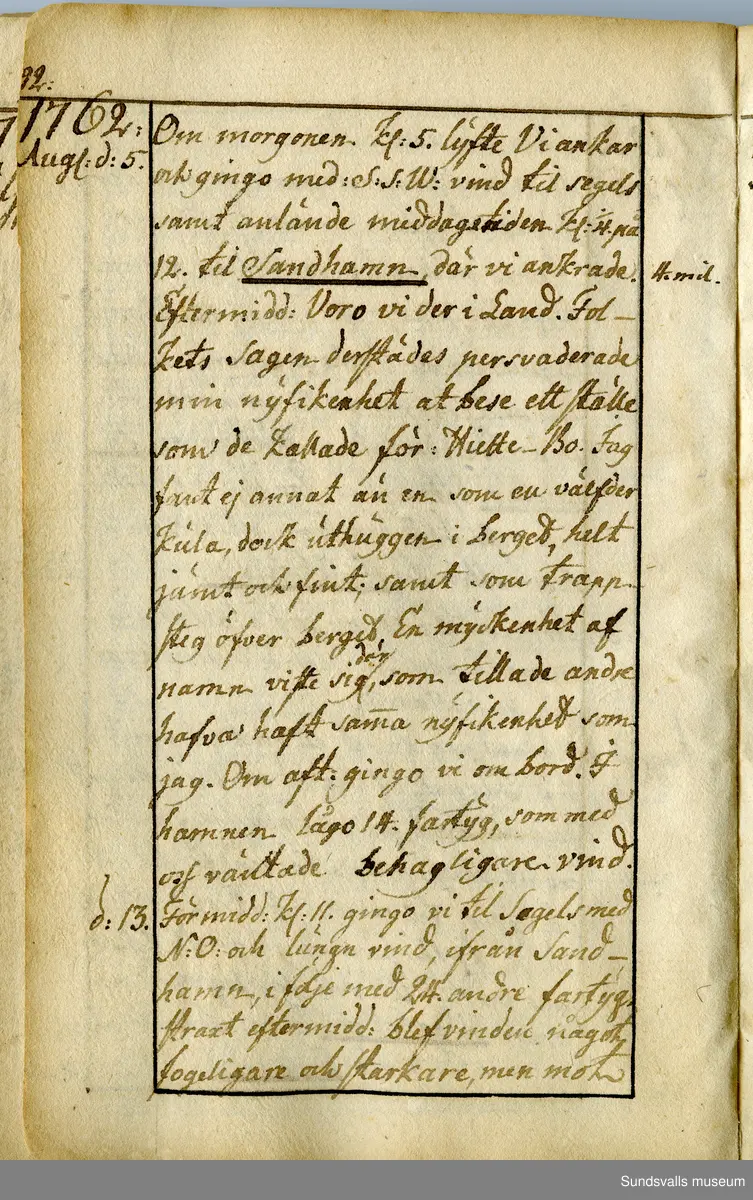 92:
1762:
Aug: d: 5.
Om morgonen Kl: 5. lyfte Vi ankar
och gingo med: S: S: W: vind til segels
samt anlände middagstiden Kl: 1/4. på
12. til Sandhamn, där vi ankrade.
4. mil.
Eftermidd: Voro vi der i Land. Fol-
kets sagen derstädes persvaderade
min nyfikenhet at bese ett ställe
som de kallade för: Hiette-Bo. Jag
fant ej annat än en som en välfder
Kula, dock uthuggen i berget, helt
jämt och fint, samt som trapp-
steg öfver berget. En myckenhet af
namn viste sig där, som tillade andre
hafva haft sam̄a nyfikenhet som
jag. Om aft: gingo vi om bord. I
hamnen lågo 14. fartyg, som med
oss väntade behagligare vind.
d: 13.
Förmidd: Kl: 11. gingo vi til Segels med
N: O: och lungn vind, ifrån Sand-
hamn, i följe med 24. andre fartyg,
straxt eftermidd: blef vinden något
fogeligare och starkare, men mot
Sundsvalls museum